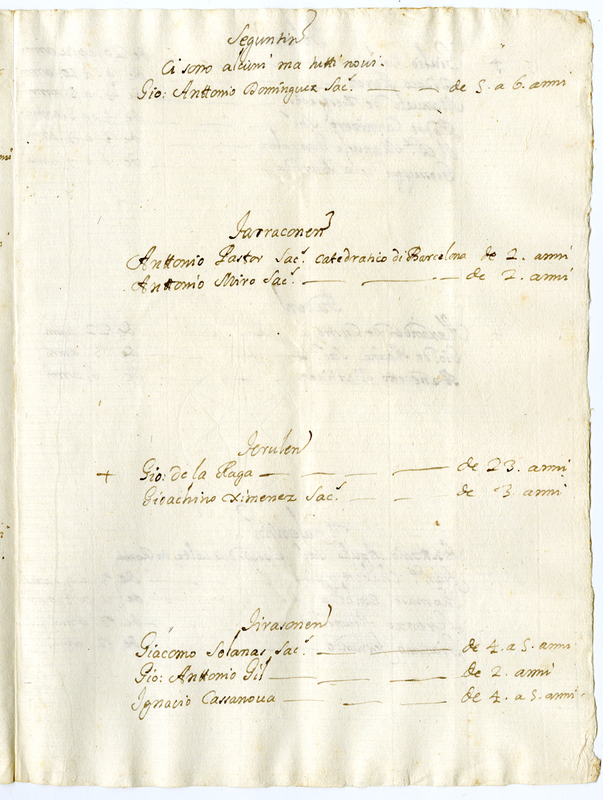 Seguntin
Ci sono alcuni ma tutti novi.
Gio: Anttonio Dominguez Sac. — — de 5. a 6. anni
Tarraconen
Anttonio Pastor Sac. Catedratico di Barcelona de 2. anni
Anttonio Miro Sac. — — — de 2. anni
Terulen
+ Gio: de la Plaga — — — — de 23. anni
Gioachino Ximenez Sac. — — de 3. anni
Tirasonen
Giacomo Solanas Sac. — — de 4. a 5. anni
Gio: Anttonio Gil — — — de 2. anni
Ignacio Cassanova — — — de 4. a 5. anni